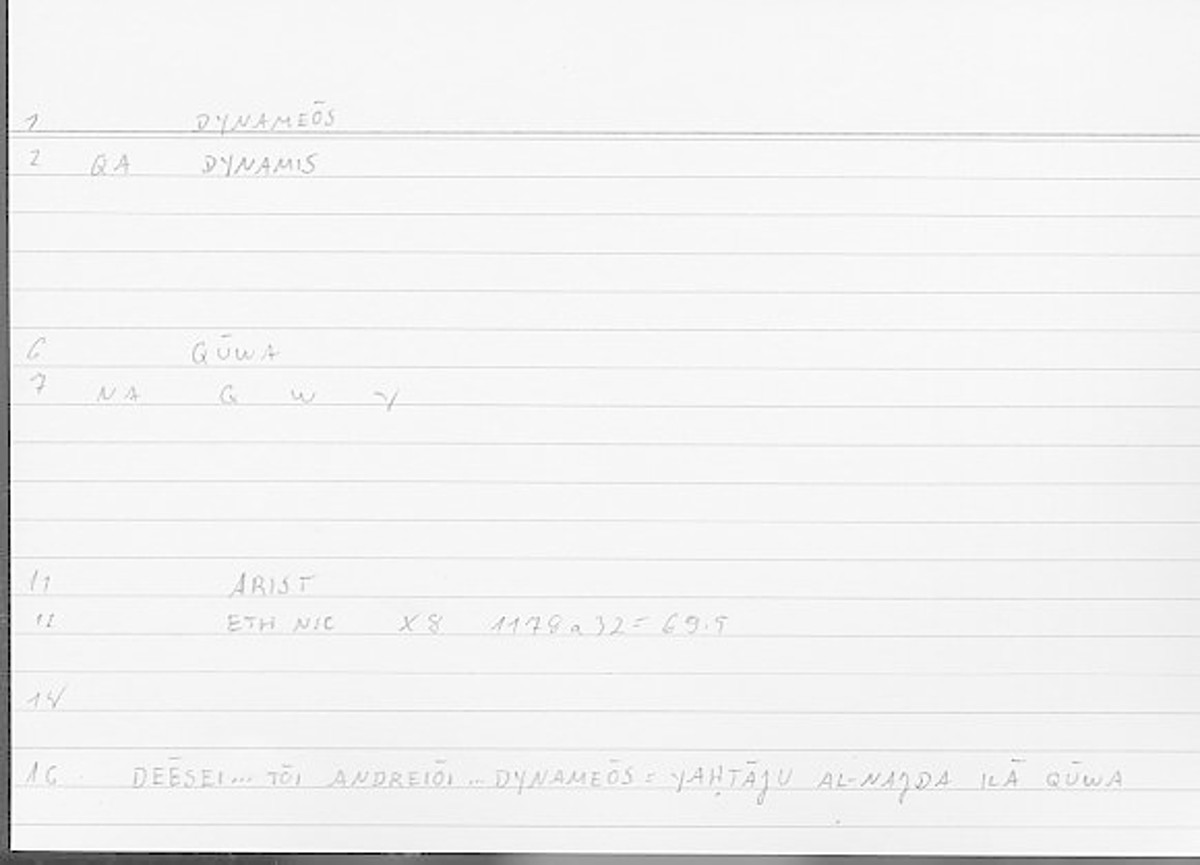 1 DYNAMEŌS
2 QA DYNAMIS
6 QŪWA
7 NA Q W Y
11 ARIST
12 ETH NIC X 8 1178 a 32 = 69.5
14
16 DEĒSEI... TŌI ANDREIŌI ... DYNAMEŌS = YAḤTĀJU AL-NAJDA ILĀ QŪWA